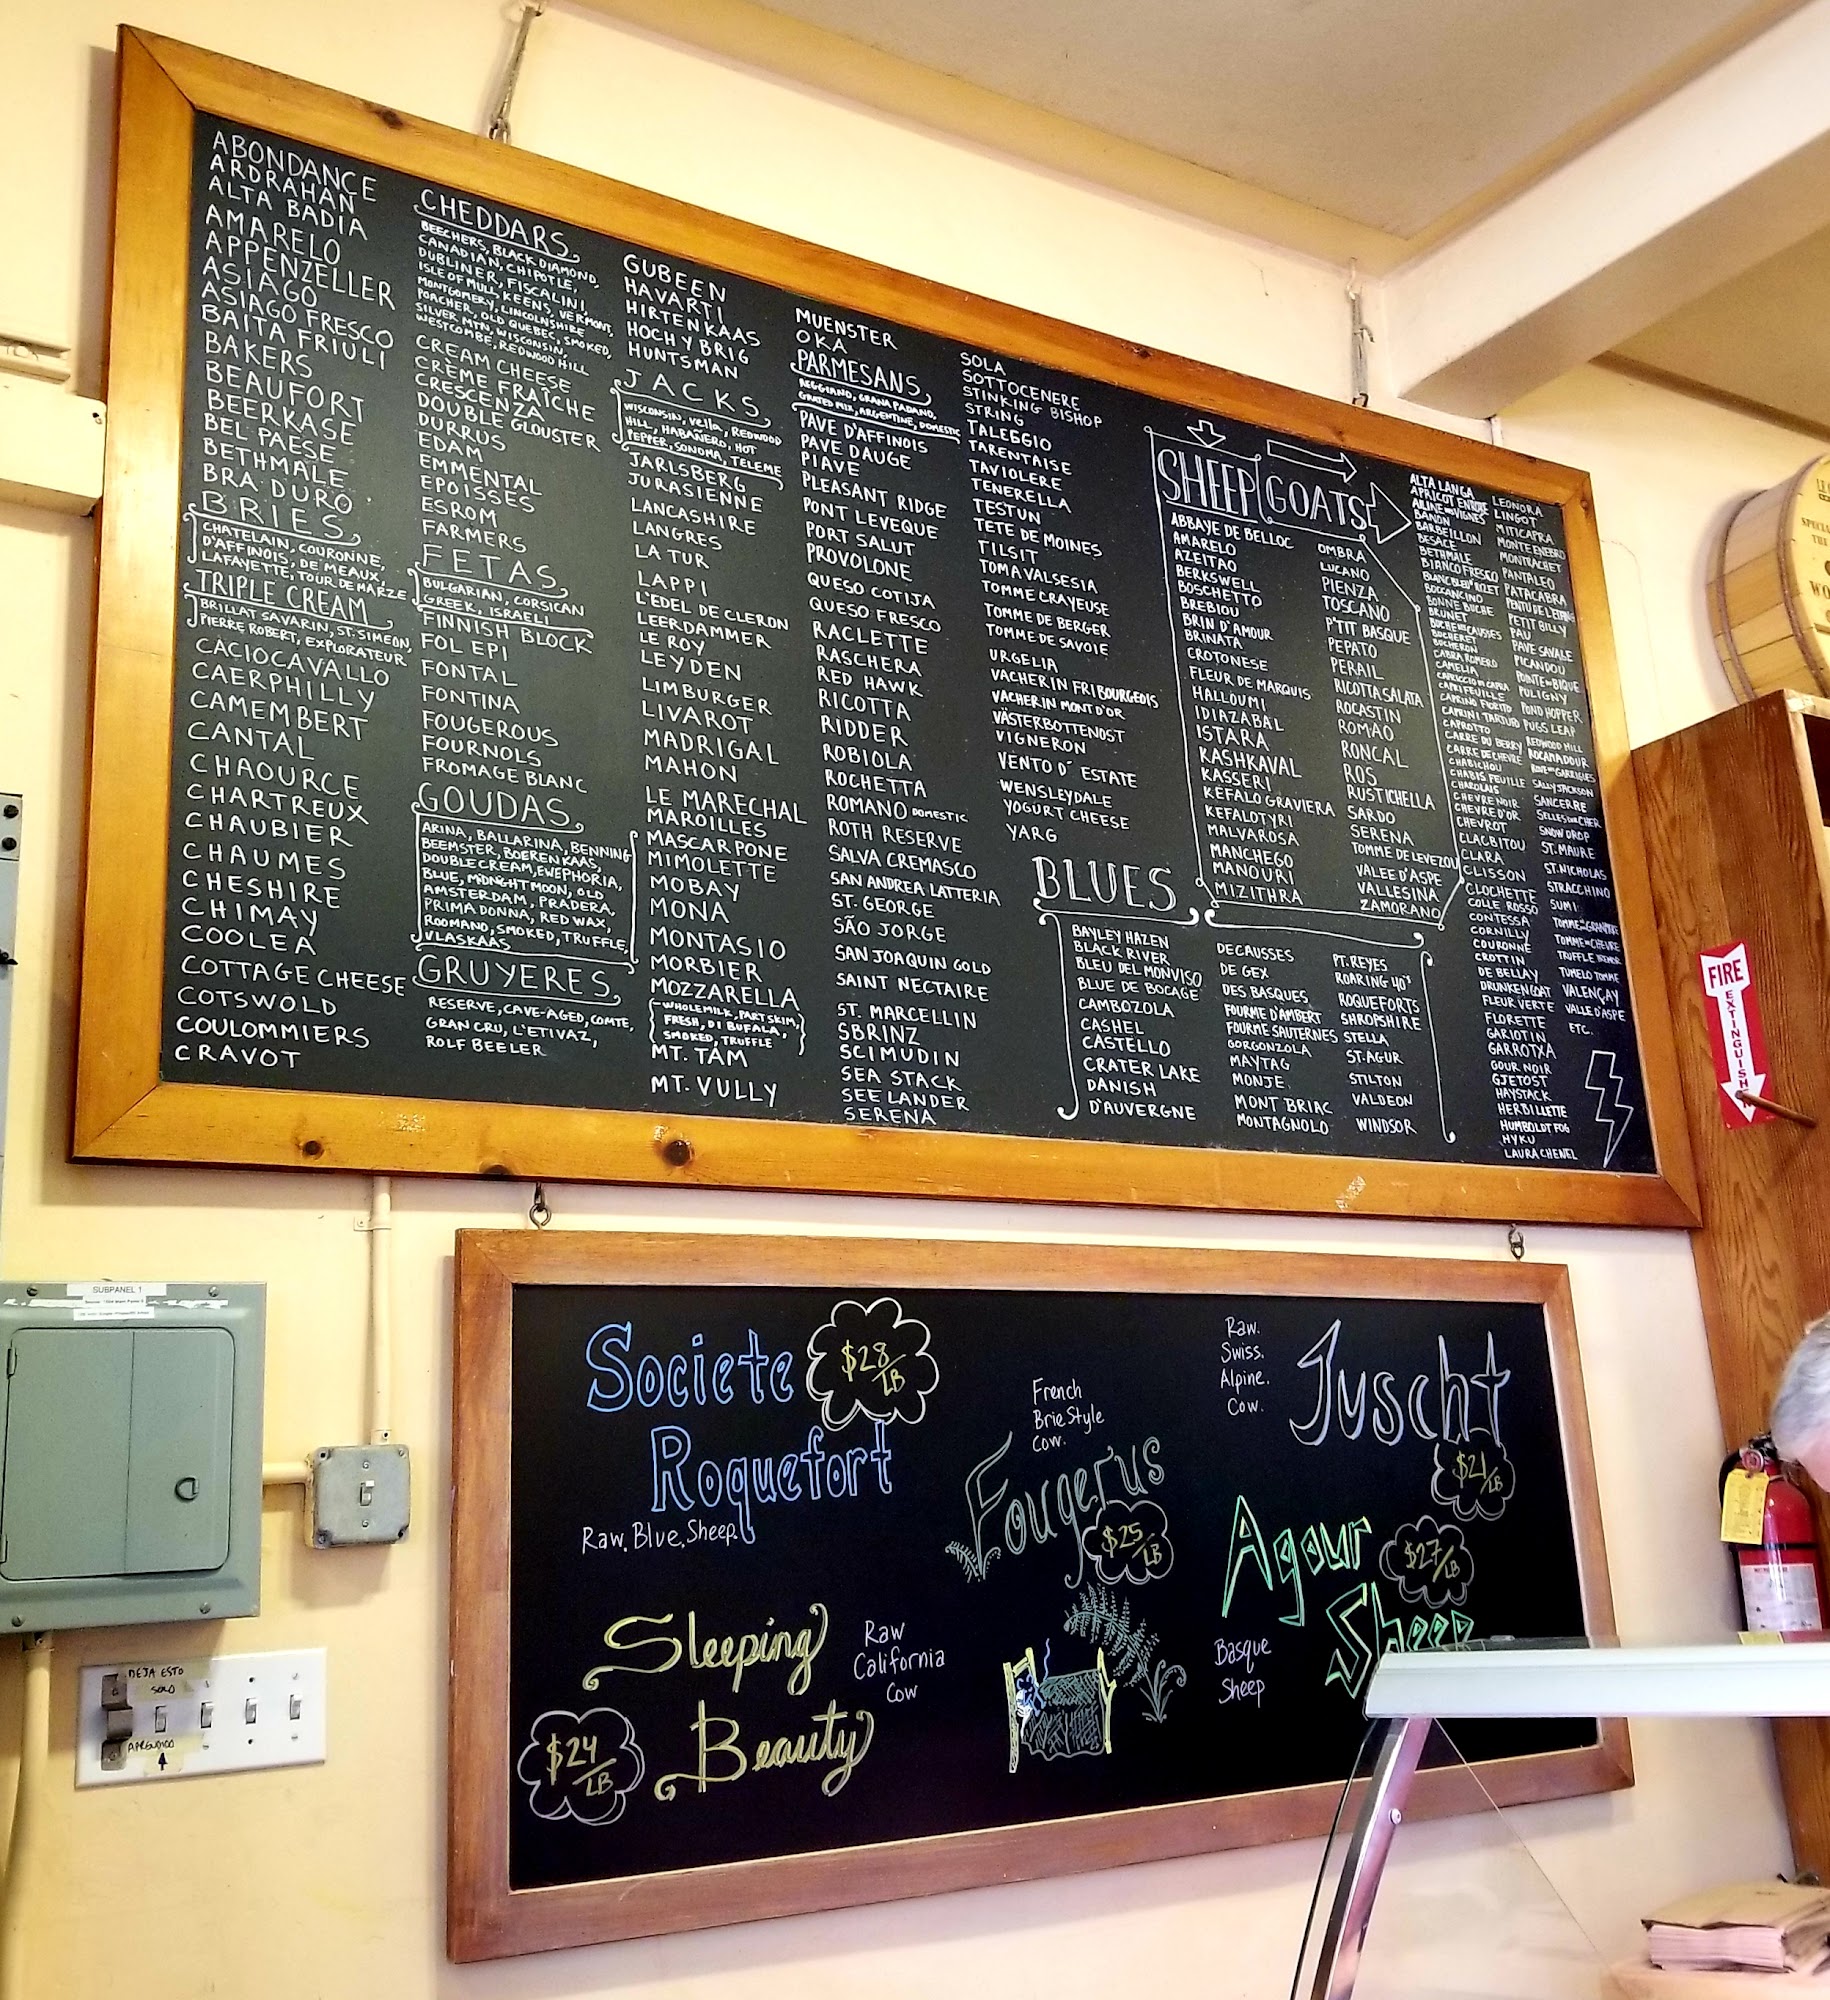 ABONDANCE
ARDRAHAN
ALTA BADIA
AMARELO
APPENZELLER
ASIAGO
ASIAGO FRESCO
BAITA FRIULI
BAKERS
BEAUFORT
BEERKASE
BEL PAESE
BETHMALE
BRA DURO
BRIES
CHATELAIN, COURONNE,
D'AFFINOIS, DE MEAUX,
LAFAYETTE, TOUR DE MARZE
TRIPLE CREAM
BRILLAT SAVARIN, ST. SIMEON,
PIERRE ROBERT, EXPLORATEUR
CACIOCAVALLO
CAERPHILLY
CAMEMBERT
CANTAL
CHAOURCE
CHARTREUX
CHAUBIER
CHAUMES
CHESHIRE
CHIMAY
COOLEA
COTTAGE CHEESE
COTSWOLD
COULOMMIERS
CRAVOT
CHEDDARS
BEECHERS, BLACK DIAMOND,
CANADIAN, CHIPOTLE,
DUBLINER, FISCALINI,
ISLE OF MULL, KEENS, VERMONT,
MONTGOMERY, LINCOLNSHIRE
POACHER, OLD QUEBEC, SMOKED,
SILVER MTN, WISCONSIN,
WESTCOMBE, REDWOOD HILL
CREAM CHEESE
CRÈME FRAÎCHE
CRESCENZA
DOUBLE GLOUSTER
DURRUS
EDAM
EMMENTAL
EPOISSES
ESROM
FARMERS
FETAS
BULGARIAN, CORSICAN
GREEK, ISRAELI
FINNISH BLOCK
FOL EPI
FONTAL
FONTINA
FOUGEROUS
FOURNOLS
FROMAGE BLANC
GOUDAS
ARINA, BALLARINA, BENNING
BEEMSTER, BOERENKAAS,
DOUBLE CREAM, EWEPHORIA,
BLUE, MIDNGHT MOON, OLD
AMSTERDAM, PRADERA,
PRIMA DONNA, RED WAX,
ROOMANO, SMOKED, TRUFFLE,
VLASKAAS
GRUYERES
RESERVE, CAVE-AGED, COMTE,
GRAN CRU, L'ETIVAZ,
ROLF BEELER
GUBEEN
HAVARTI
HIRTENKAAS
HOCH Y BRIG
HUNTSMAN
JACKS
WISCONSIN, VELLA, REDWOOD
HILL, HABAÑERO, HOT
PEPPER, SONOMA, TELEME
JARLSBERG
JURASIENNE
LANCASHIRE
LANGRES
LA TUR
LAPPI
L'EDEL DE CLERON
LEERDAMMER
LE ROY
LEYDEN
LIMBURGER
LIVAROT
MADRIGAL
MAHON
LE MARECHAL
MAROILLES
MASCARPONE
MIMOLETTE
MOBAY
MONA
MONTASIO
MORBIER
MOZZARELLA
WHOLE MILK, PART SKIM,
FRESH, DI BUFALA,
SMOKED, TRUFFLE
MT. TAM
MT. VULLY
MUENSTER
OKA
PARMESANS
REGGIANO, GRANA PADANO,
GRATED MIX, ARGENTINE, DOMESTIC
PAVE D'AFFINOIS
PAVE DAUGE
PIAVE
PLEASANT RIDGE
PONT LEVEQUE
PORT SALUT
PROVOLONE
QUESO COTIJA
QUESO FRESCO
RACLETTE
RASCHERA
RED HAWK
RICOTTA
RIDDER
ROBIOLA
ROCHETTA
ROMANO DOMESTIC
ROTH RESERVE
SALVA CREMASCO
SAN ANDREA LATTERIA
ST. GEORGE
SÃO JORGE
SAN JOAQUIN GOLD
SAINT NECTAIRE
ST. MARCELLIN
SBRINZ
SCIMUDIN
SEA STACK
SEE LANDER
SERENA
SOLA
SOTTOCENERE
STINKING BISHOP
STRING
TALEGGIO
TARENTAISE
TAVIOLERE
TENERELLA
TESTUN
TETE DE MOINES
TILSIT
TOMA VALSESIA
TOMME CRAYEUSE
TOMME DE BERGER
TOMME DE SAVOIE
URGELIA
VACHERIN FRIBOURGEOIS
VACHERIN MONT D'OR
VÄSTERBOTTENOST
VIGNERON
VENTO D'ESTATE
WENSLEYDALE
YOGURT CHEESE
YARG
BLUES
BAYLEY HAZEN
BLACK RIVER
BLEU DEL MONVISO
BLUE DE BOCAGE
CAMBOZOLA
CASHEL
CASTELLO
CRATER LAKE
DANISH
D'AUVERGNE
DECAUSSES
DE GEX
DES BASQUES
FOURME D'AMBERT
FOURME SAUTERNES
GORGONZOLA
MAYTAG
MONJE
MONT BRIAC
MONTAGNOLO
PT. REYES
ROARING 40'S
ROQUEFORTS
SHROPSHIRE
STELLA
ST. AGUR
STILTON
VALDEON
WINDSOR
SHEEP GOATS
ABBAYE DE BELLOC
AMARELO
AZEITAO
BERKSWELL
BOSCHETTO
BREBIOU
BRIN D'AMOUR
BRINATA
CROTONESE
FLEUR DE MARQUIS
HALLOUMI
IDIAZABAL
ISTARA
KASHKAVAL
KASSERI
KEFALOGRAVIERA
KEFALOTYRI
MALVAROSA
MANCHEGO
MANOURI
MIZITHRA
OMBRA
LUCANO
PIENZA
TOSCANO
P'TIT BASQUE
PEPATO
PERAIL
RICOTTA SALATA
ROCASTIN
ROMAO
RONCAL
ROS
RUSTICHELLA
SARDO
SERENA
TOMME DE LEVEZOU
VALEE D'ASPE
VALLESINA
ZAMORANO
ALTA LANGA
BANON
BARBEILLON
BESACE
BETHMALE
BIANCO FRESCO
BOCCANCINO
BONNE BUCHE
BRUNET
BUCHERET
BUCHERON
CABRA ROMERO
CAMELIA
CAPRIFEUILLE
CAPRINO FIORITO
CAPRINI TARTUFO
CAPROTTO
CARRE DU BERRY
CARRE DE CHEVRE
CHABICHOU
CHABIS FEUILLE
CHAROLAIS
CHEVRE NOIR
CHEVRE D'OR
CHEVROT
CLACBITOU
CLARA
CLISSON
CLOCHETTE
COLLE ROSSO
CONTESSA
CORNILLY
COURONNE
CROTTIN
DE BELLAY
DRUNKEN GOAT
FLEUR VERTE
FLORETTE
GARIOTIN
GARROTXA
GOUR NOIR
GJETOST
HAYSTACK
HERBILLETTE
HUMBOLDT FOG
HYKU
LAURA CHENEL
LEONORA
LINGOT
MITICAPRA
MONTE ENEBRO
MONTRACHET
PANTALEO
PATACABRA
PETIT BILLY
PAU
PAVE SAVALE
PICANDOU
POINTE DE BIQUE
PULIGNY
POND HOPPER
PUGS LEAP
REDWOOD HILL
ROCAMADOUR
ROVE DES GARRIGUES
SALLY JACKSON
SANCERRE
SELLES SUR CHER
SNOW DROP
ST. MAURE
ST. NICHOLAS
STRACCHINO
SUMI
TOMME DE CHEVRE
TUMELO TOMME
VALENÇAY
VALLE D'ASPE
ETC.
FIRE
EXTINGUISHER
SUBPANEL 1
DEJA ESTO
SOLO
APAGADO
Societe
Roquefort
$28/LB
Raw. Blue. Sheep.
Sleeping
Beauty
$24/LB
Raw
California
Cow
French
Brie Style
Cow.
Fougerus
$25/LB
Raw.
Swiss.
Alpine.
Cow.
Juscht
$21/LB
Agour
Sheep
$27/LB
Basque
Sheep